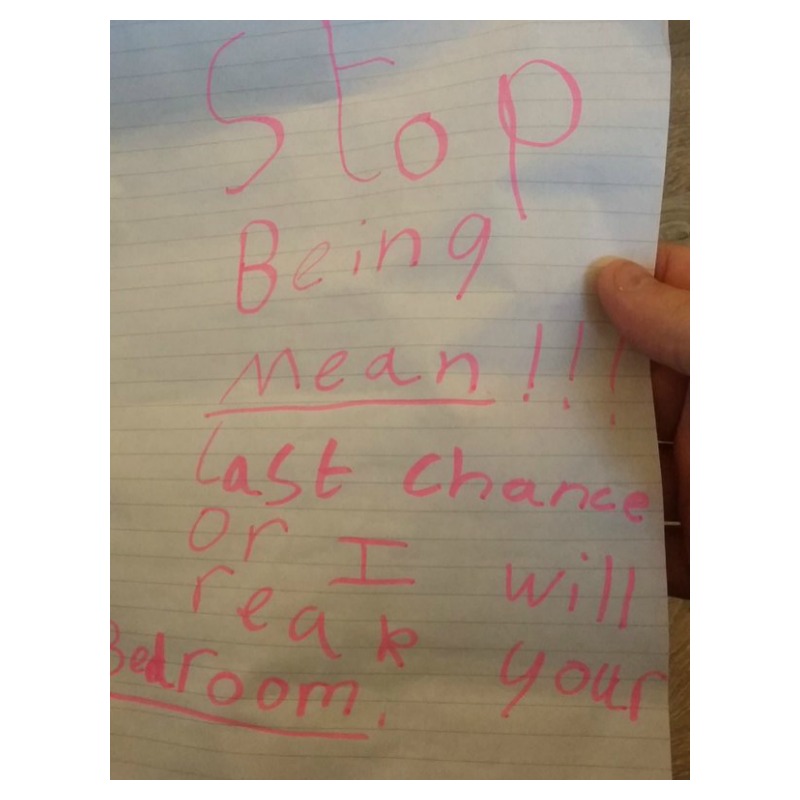 Stop
Being
mean!!!
last chance
or I will
reak your
Bedroom.